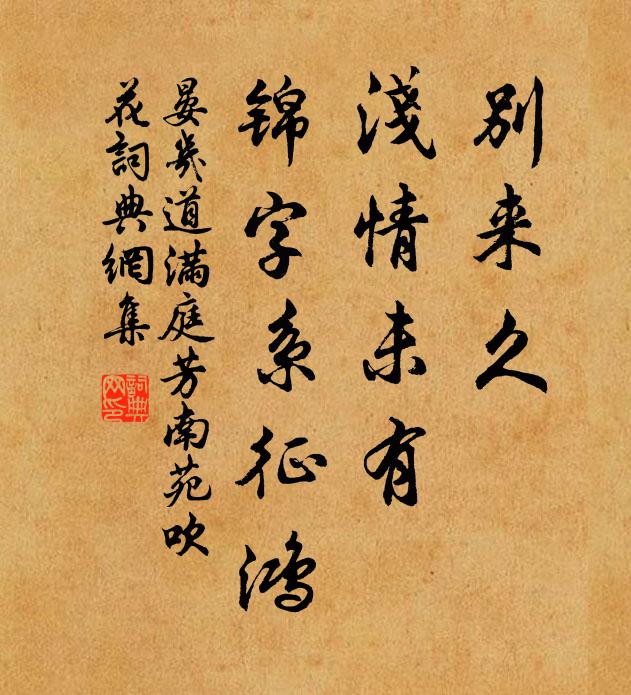 別来久
淺情未有
锦字系征鸿
晏幾道滿庭芳南苑吹
花詞典網集
詞典网印